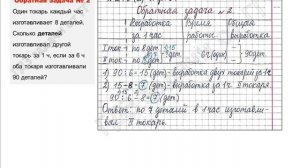 Обратная задача № 2
Один токарь каждый час
изготавливает 8 деталей.
Сколько деталей
изготавливал другой
токарь за 1 ч, если за 6 ч
оба токаря изготавливали
90 деталей?
Обратная задача № 2.
Выработка Время Общая
за 1 час работы выработка
I ток - по 8 дет
II ток - по ? дет
90 дет
1) 90 : 6 = 15 (дет) - выработка двух токарей за 1 ч
2) 15 - 8 = 7 (дет) - выработка за 1 ч II токаря
90 : 6 - 8 = 7 (дет)
Ответ: по 7 деталей в 1 час изготавли-
вал II токарь.